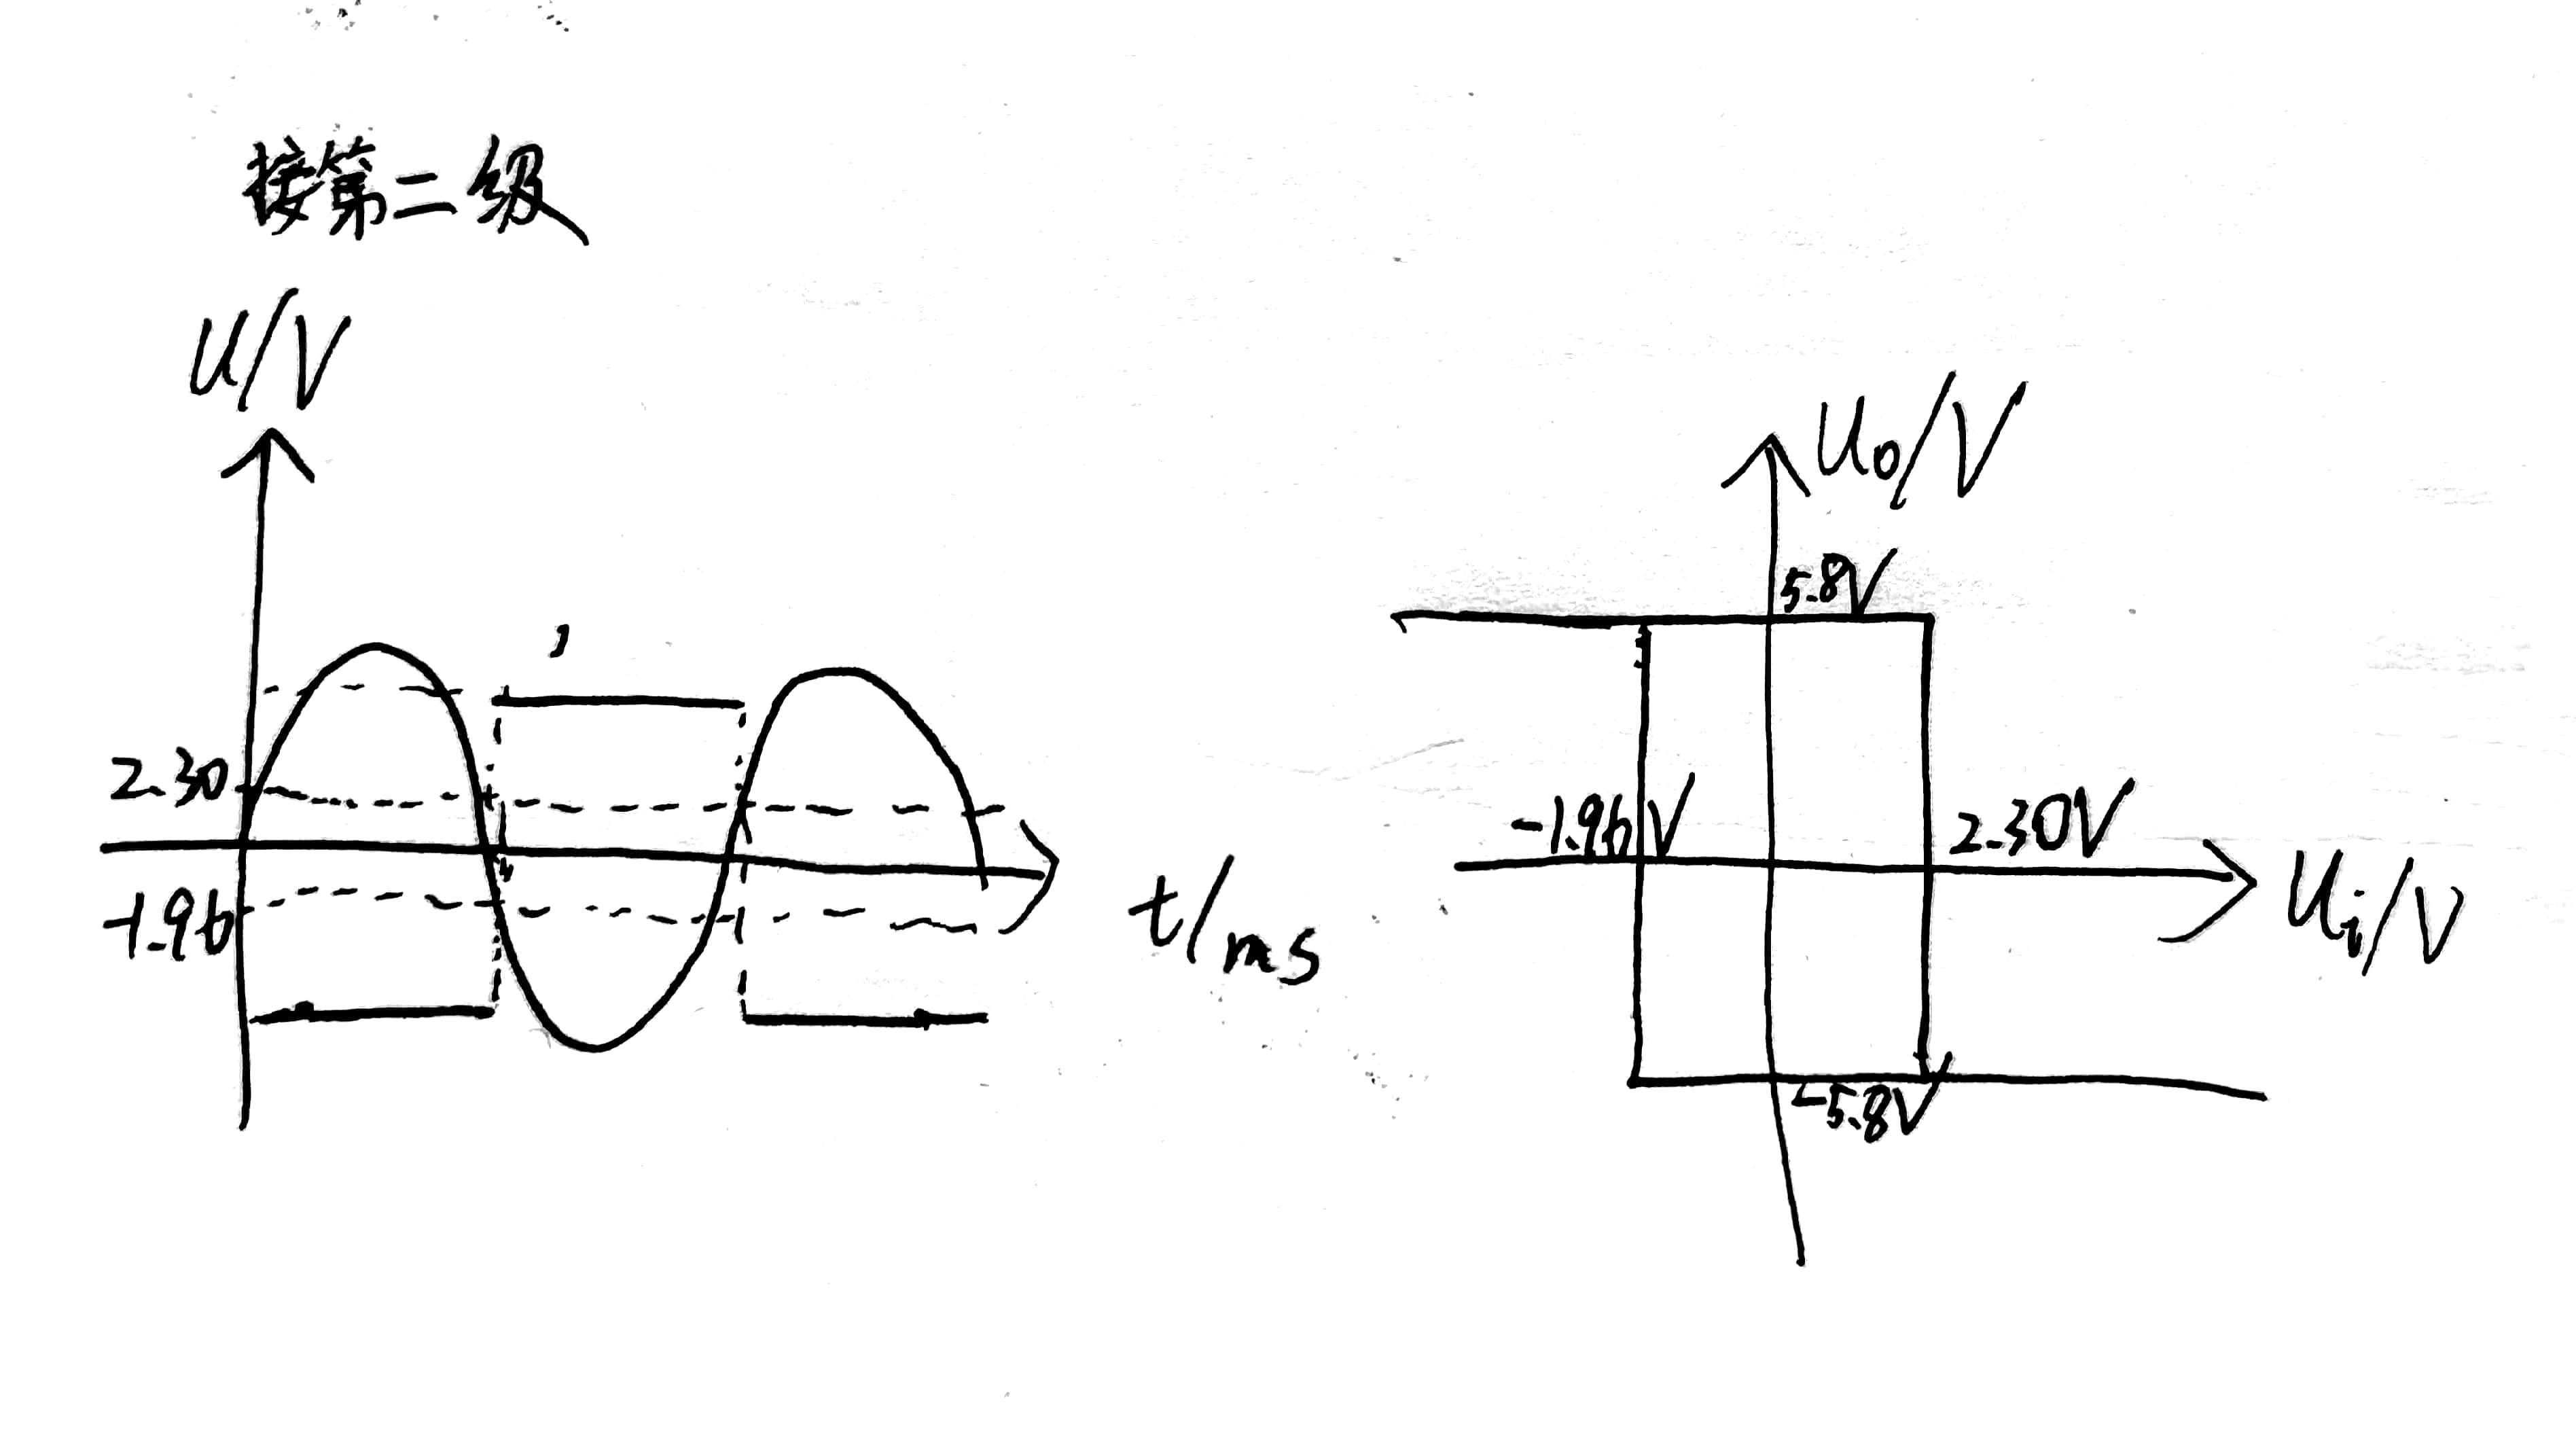 接第二级
U/V
2.30
-1.96
t/ms
Uo/V
5.8V
-1.96V
2.30V
Ui/V
-5.8V